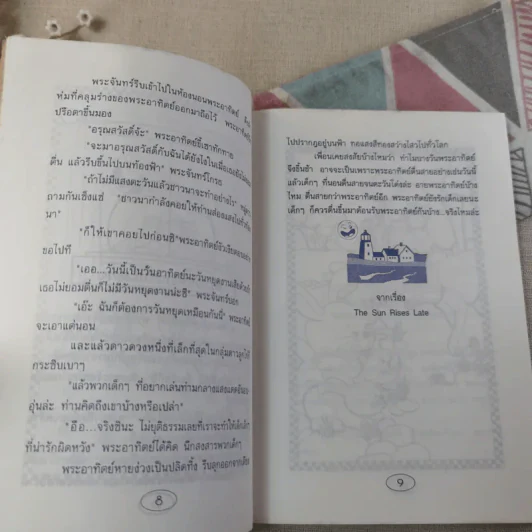 พระจันทร์รีบเข้าไปในห้องนอนพระอาทิตย์
ห่มที่คลุมร่างของพระอาทิตย์ออกมาถือไว้
ปรือตาขึ้นมอง
"อรุณสวัสดิ์จ้ะ" พระอาทิตย์ยิ้เซาทักทาย
"จะมาอรุณสวัสดิ์กับฉันได้ยังไงในเมื่อเธอยัง
ตื่น แล้วรีบขึ้นไปบนท้องฟ้า" พระจันทร์โกรธ
"ถ้าไม่มีแสงตะวันแล้วชาวนาจะทำอย่างไร"
ถามกันเซ็งแซ่ "ชาวนากำลังคอยให้ท่านส่องแสงไปทั่ว
นา"
"ก็ให้เขาคอยไปก่อนซิ"พระอาทิตย์
ขอไปที
"เออ...วันนี้เป็นวันอาทิตย์นะวันหยุดงานเสียด้วย
เธอไม่ยอมตื่นก็ไม่มีวันหยุดงานน่ะซี" พระจันทร์บอก
"เอ๊ะ ฉันก็ต้องการวันหยุดเหมือนกันนี่" พระอาทิตย์
จะเอาแต่นอน
และแล้วดาวดวงหนึ่งที่เล็กที่สุดในกลุ่มดาว
กระซิบเบาๆ
"แล้วพวกเด็กๆ ที่อยากเล่นท่ามกลางแสงแดดอัน
อุ่นล่ะ ท่านคิดถึงเขาบ้างหรือเปล่า"
"อือ...จริงซินะ ไม่ยุติธรรมเลยที่เราจะทำให้เด็กเล็กๆ
ที่น่ารักผิดหวัง" พระอาทิตย์ได้คิด นึกสงสารพวกเด็กๆ
พระอาทิตย์หายง่วงเป็นปลิดทิ้ง รีบลุกออกจากเตียง
8
ไปปรากฏอยู่บนฟ้า ทอแสงสีทองสว่างไสวไปทั่วโลก
เพื่อนเคยสงสัยบ้างไหมว่า ทำไมบางวันพระอาทิตย์
จึงขึ้นช้า อาจจะเป็นเพราะพระอาทิตย์ตื่นสายอย่างเช่นวันนี้
แล้วเด็กๆ ที่นอนตื่นสายจนตะวันโด่งล่ะ อายพระอาทิตย์บ้าง
ไหม ตื่นสายกว่าพระอาทิตย์อีก พระอาทิตย์ยังรักเด็กเลยนะ
เด็กๆ ก็ควรตื่นขึ้นมาต้อนรับพระอาทิตย์กันบ้าง..จริงไหมล่ะ
จากเรื่อง
The Sun Rises Late
9